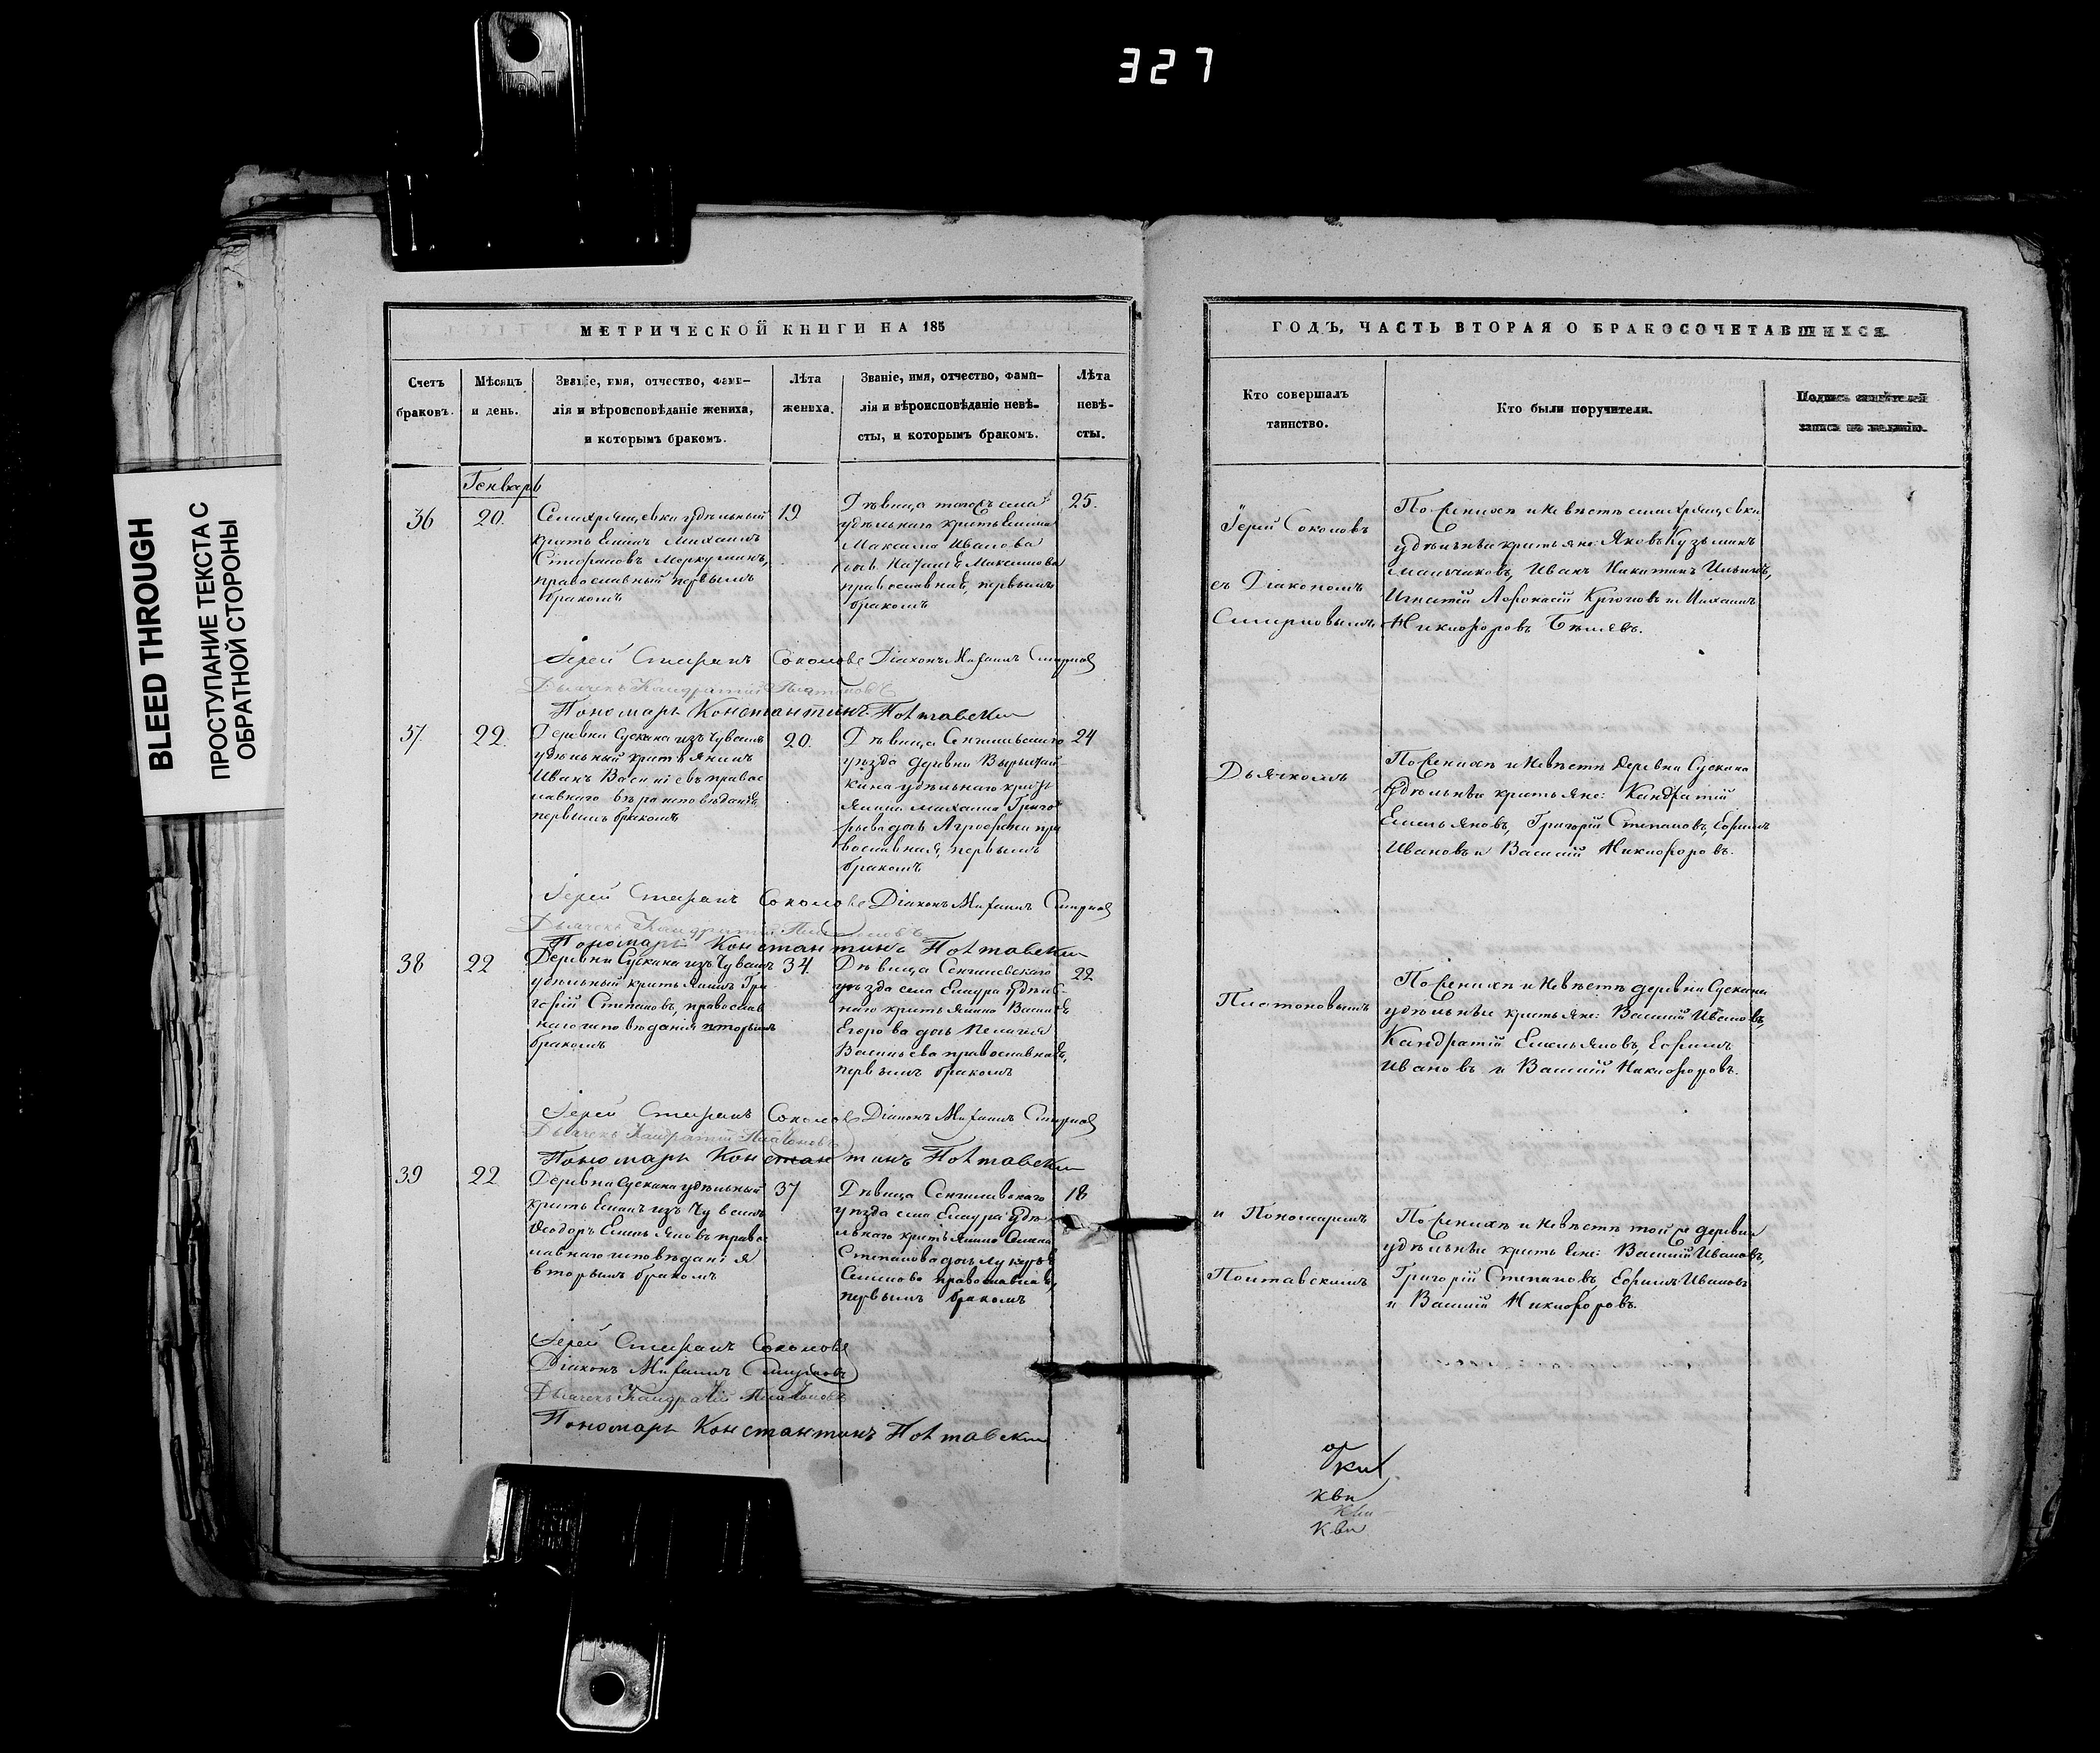 327
BLEED THROUGH
ПРОСТУПАНИЕ ТЕКСТА С
ОБРАТНОЙ СТОРОНЫ
МЕТРИЧЕСКОЙ КНИГИ НА 185
Счетъ
браковъ.
Мѣсяцъ
и день.
Званіе, имя, отчество, фами-
лія и вѣроисповѣданіе жениха,
и которымъ бракомъ.
Лѣта
жениха.
Званіе, имя, отчество, фами-
лія и вѣроисповѣданіе невѣ-
сты, и которымъ бракомъ.
Лѣта
невѣ-
сты.
Генварь
36
20.
Села Хрящевки удѣльный
крестьянинъ Михаилъ
Стефановъ Моркулинъ,
православный первымъ
бракомъ
19
Дѣвица тогожъ села
удѣльнаго крестьянина
Максима Иванова
дочь Максимова
православная, первымъ
бракомъ
25.
Іерей Стефанъ Соколовъ Діаконъ Михаилъ Смирновъ
Дьячекъ Кандратій Платоновъ
Пономарь Константинъ Полтавскій
37
22.
Деревни Сускана изъ Чувашъ
удѣльный крестьянинъ
Иванъ Васильевъ правос
лавнаго вѣроисповѣданія
первымъ бракомъ
20.
Дѣвица Сенгилевскаго
уѣзда деревни
кина удѣльнаго кресть
янина Михаила Григо
рьева дочь Агрофена пра
вославная, первымъ
бракомъ
24
Іерей Стефанъ Соколовъ Діаконъ Михаилъ Смирновъ
Дьячекъ Кандратій Платоновъ
Пономарь Константинъ Полтавскій
38
22
Деревни Сускана изъ Чувашъ
удѣльный крестьянинъ Гри
горій Степановъ, православ
наго исповѣданія вторымъ
бракомъ
34.
Дѣвица Сенгилевскаго
уѣзда села Елаура удѣль
наго крестьянина Василья
Егорова дочь Пелагія
Васильева православная,
первымъ бракомъ
22
Іерей Стефанъ Соколовъ Діаконъ Михаилъ Смирновъ
Дьячекъ Кандратій Платоновъ
Пономарь Константинъ Полтавскій
39
22
Деревни Сускана удѣльный
крестьянинъ изъ Чувашъ
Ѳеодоръ Емельяновъ правос
лавнаго исповѣданія
вторымъ бракомъ
37
Дѣвица Сенгилевскаго
уѣзда села Елаура удѣ
льнаго крестьянина Семена
Степанова дочь Лукерья
Семенова православная,
первымъ бракомъ
18
Іерей Стефанъ Соколовъ
Діаконъ Михаилъ Смирновъ
Дьячекъ Кандратій Платоновъ
Пономарь Константинъ Полтавскій
ГОДЪ, ЧАСТЬ ВТОРАЯ О БРАКОСОЧЕТАВШИХСЯ
Кто совершалъ
таинство.
Кто были поручители.
Подпись свидѣтелей
записи по желанію.
Іерей Соколовъ
съ Діакономъ
Смирновымъ
По женихѣ и невѣстѣ села Хрящевки
удѣльные крестьяне: Яковъ Кузьминъ
Мальчиковъ, Иванъ Никитинъ Ильинъ,
Игнатій Афонасій Крючовъ и Михаилъ
Никифоровъ Бѣляевъ.
Дьячкомъ
По женихѣ и невѣстѣ деревни Сускана
удѣльные крестьяне: Кандратій
Емельяновъ, Григорій Степановъ, Ефимъ
Ивановъ и Василій Никифоровъ.
Платоновымъ
По женихѣ и невѣстѣ деревни Сускана
удѣльные крестьяне: Василій Ивановъ,
Кандратій Емельяновъ, Ефимъ
Ивановъ и Василій Никифоровъ.
и Пономаремъ
Полтавскимъ
По женихѣ и невѣстѣ той же деревни
удѣльные крестьяне: Василій Ивановъ,
Григорій Степановъ, Ефимъ Ивановъ
и Василій Никифоровъ.